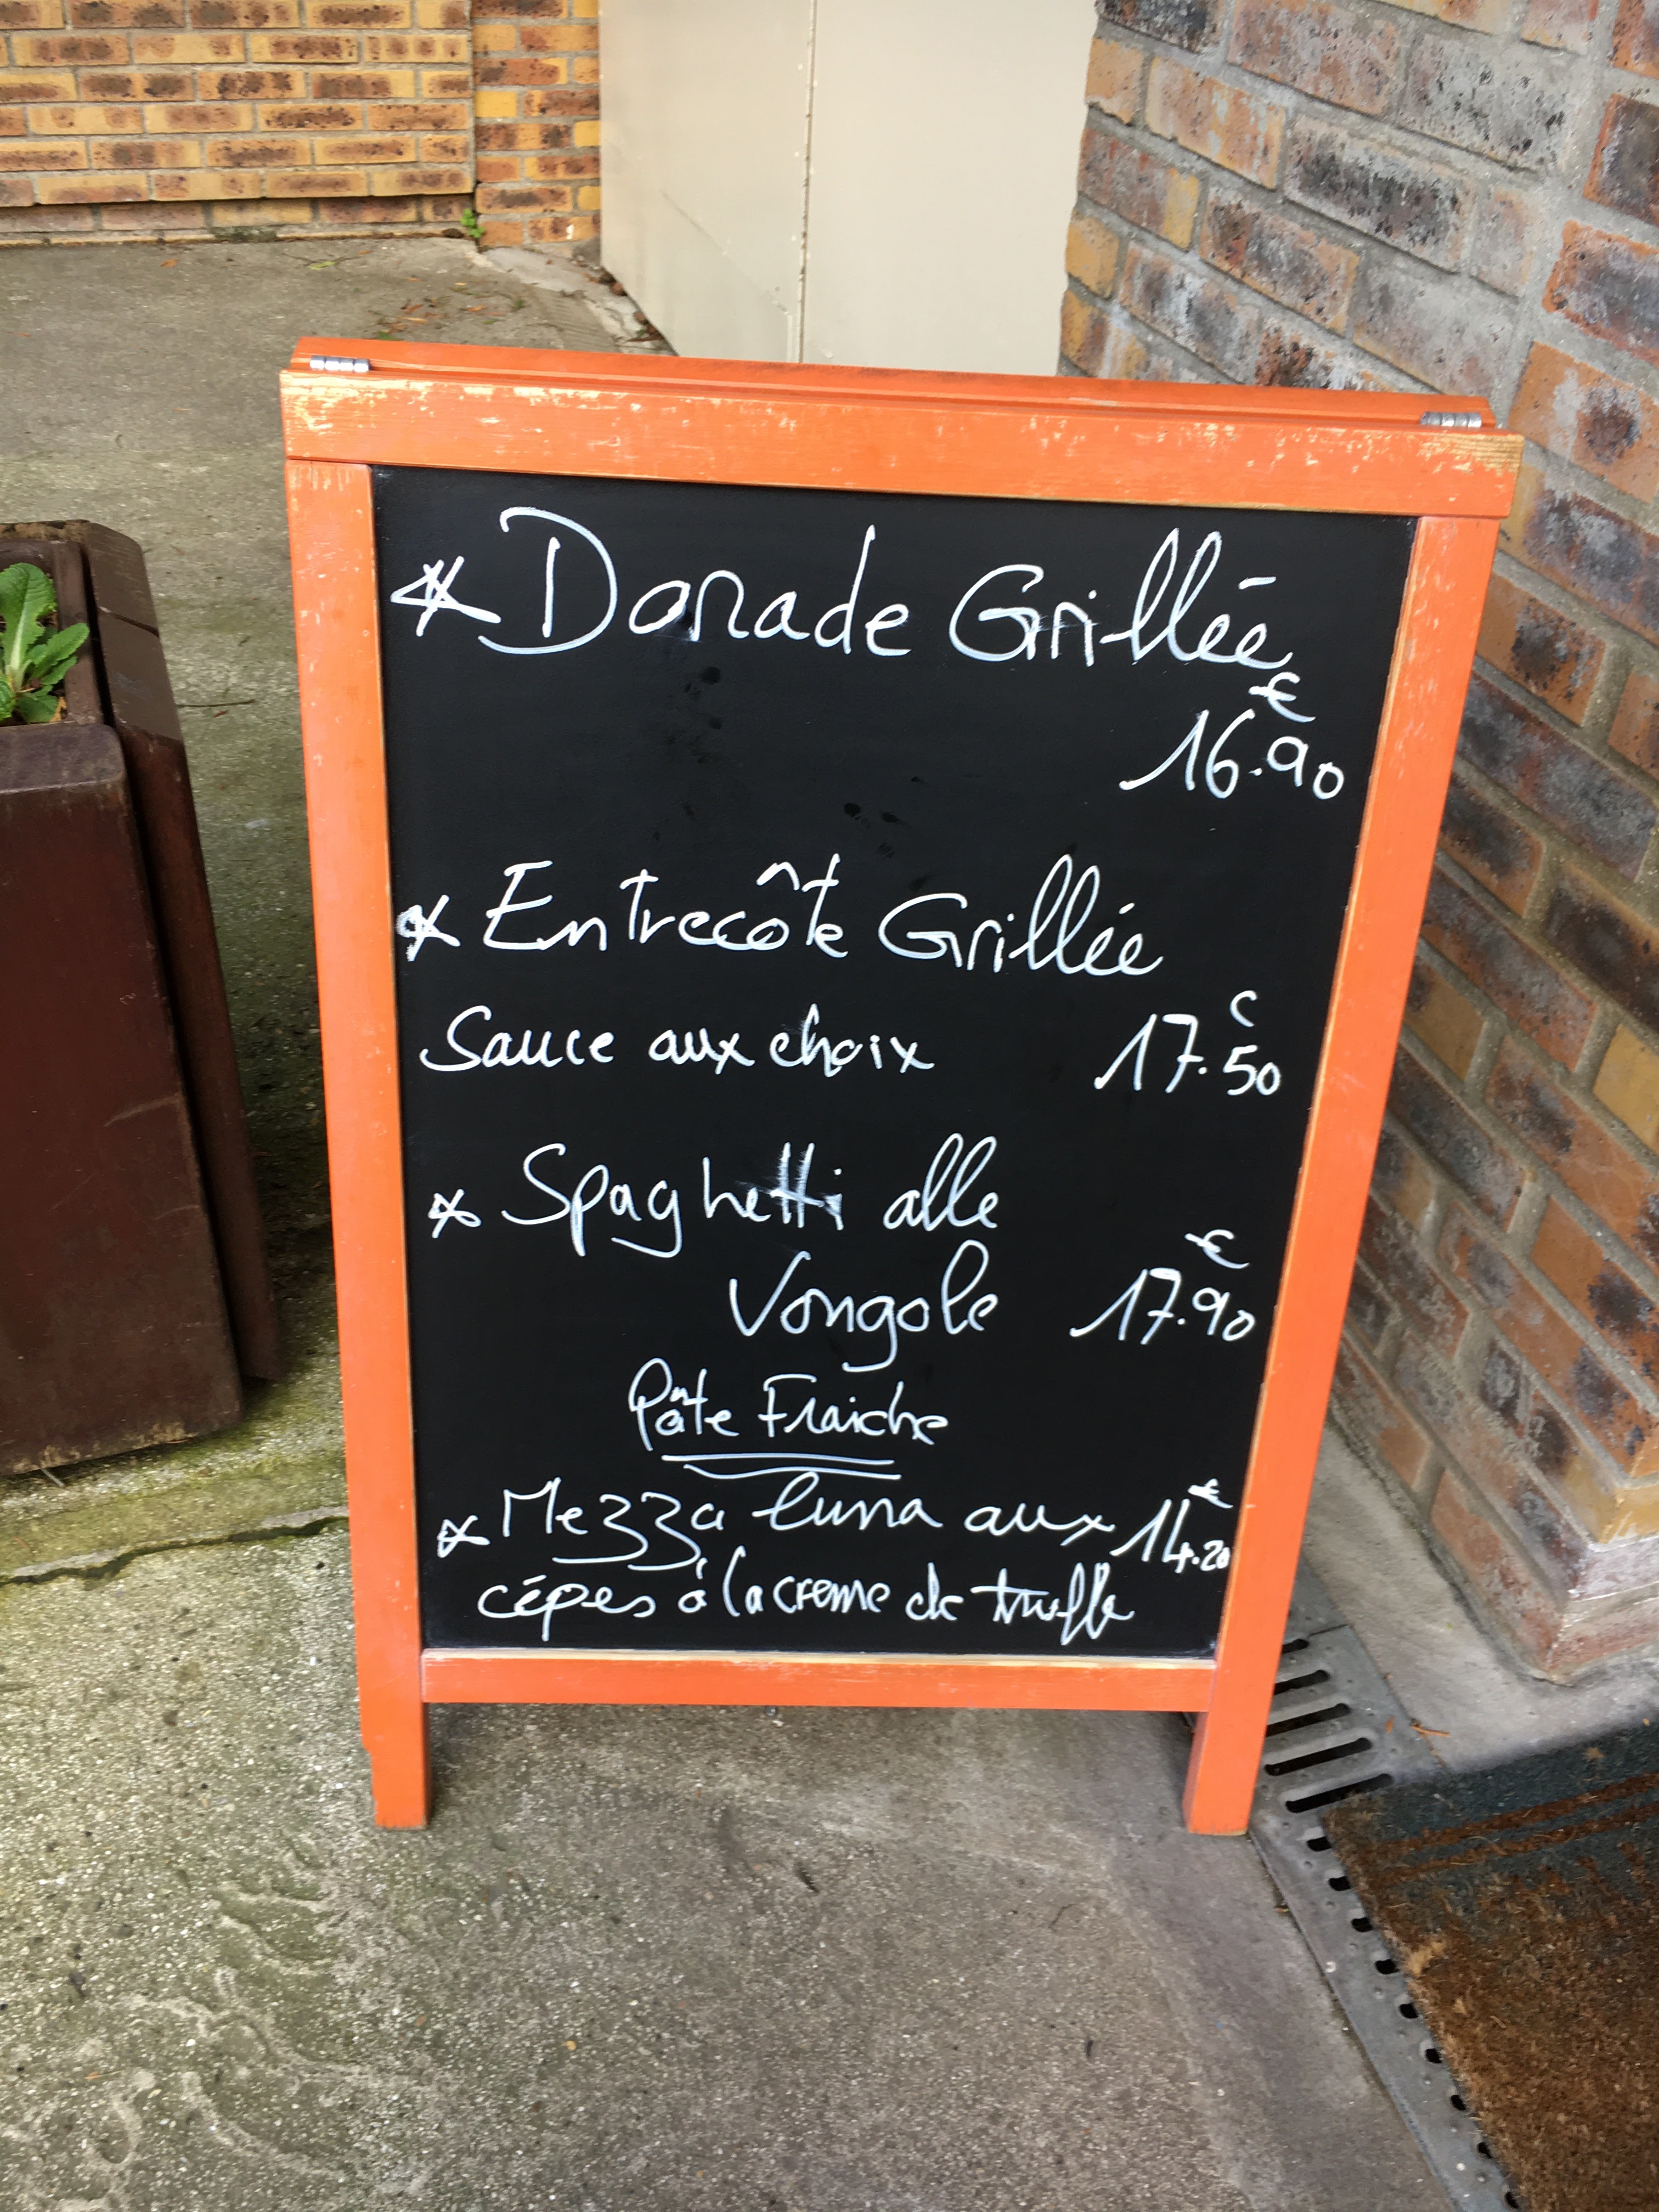 * Dorade Grillée
€
16.90
* Entrecôte Grillée
Sauce aux choix
€
17.50
* Spaghetti alle
Vongole
€
17.90
Pâte Fraiche
* Mezza luna aux
€
14.20
cépes à la creme de truffe